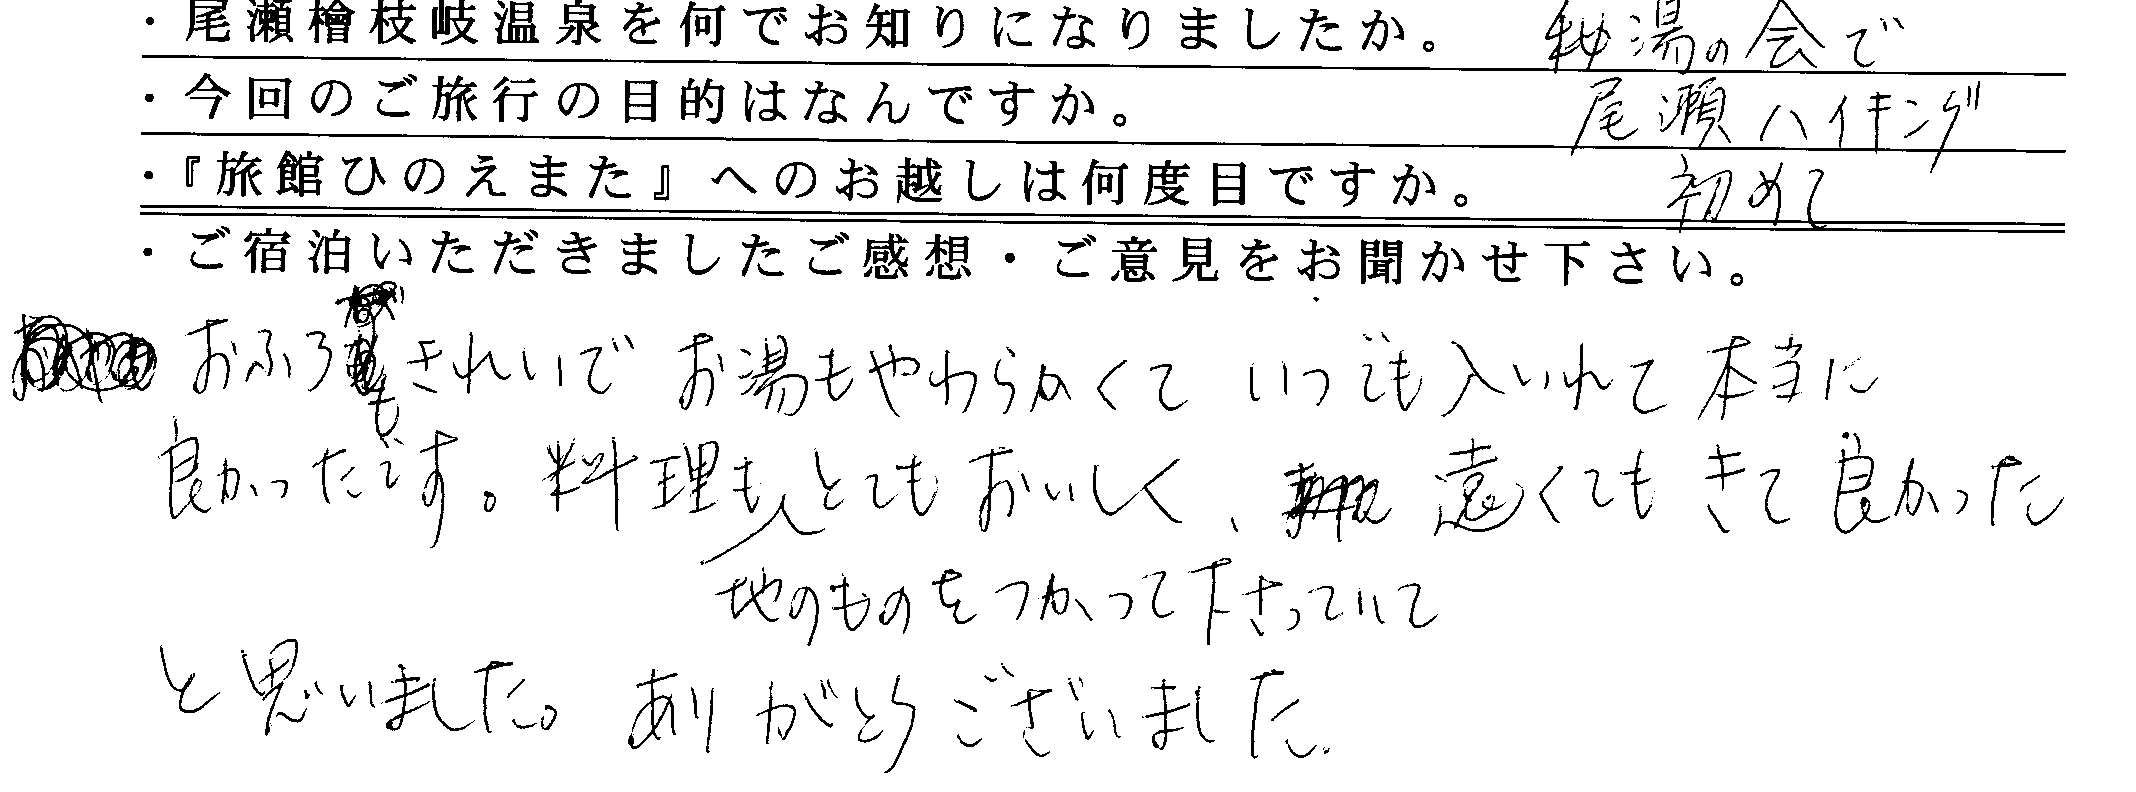 ・尾瀬檜枝岐温泉を何でお知りになりましたか。 秘湯の会で
・今回のご旅行の目的はなんですか。 尾瀬ハイキング
・『旅館ひのえまた』へのお越しは何度目ですか。 初めて
・ご宿泊いただきましたご感想・ご意見をお聞かせ下さい。
おふろもきれいで お湯もやわらかくて いつでも入いれて 本当に
良かったです。料理もとてもおいしく、遠くても きて 良かった
地のものをつかって下さっていて
と思いました。ありがとうございました.